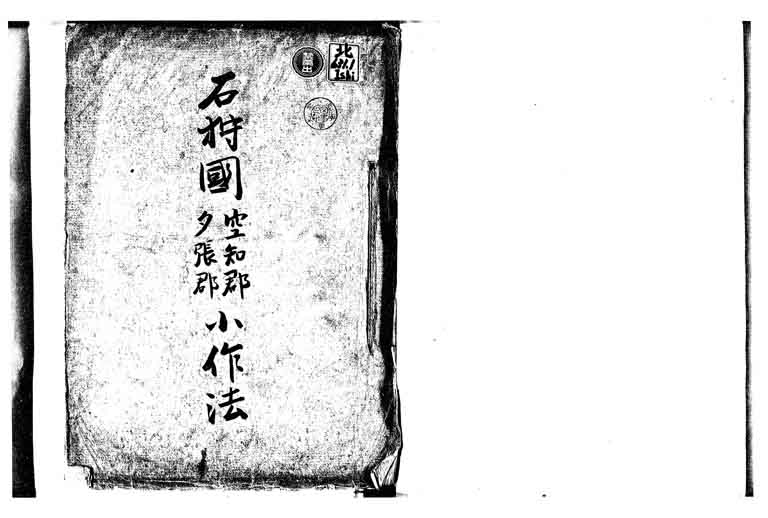 石狩國
空知郡
夕張郡
小作法
北